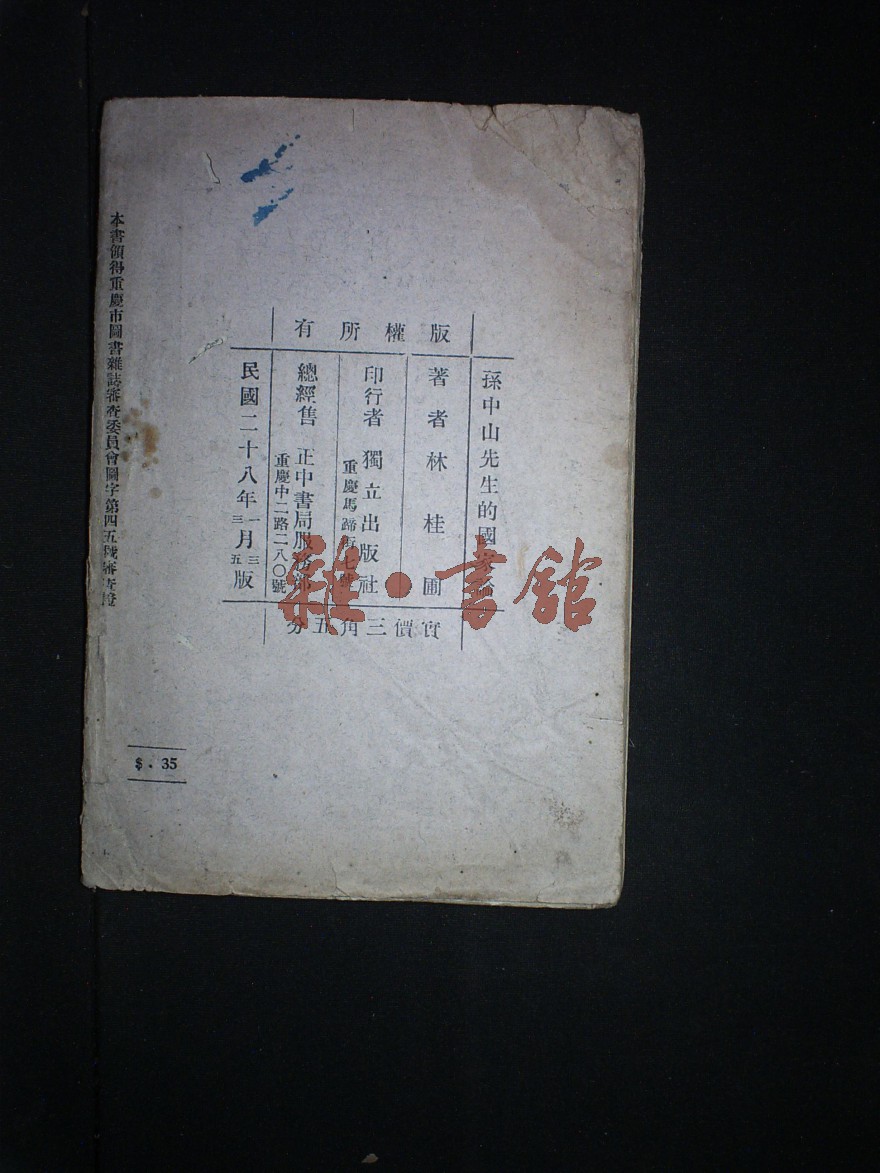 版權所有
孫中山先生的國家論
著者 林桂圃
印行者 獨立出版社
重慶馬蹄街七號
總經售 正中書局服務部
重慶中二路二八〇號
民國二十八年一月三版
三 五
實價三角五分
本書領得重慶市圖書雜誌審查委員會圖字第四五號審查證
$ . 35
雜·書館